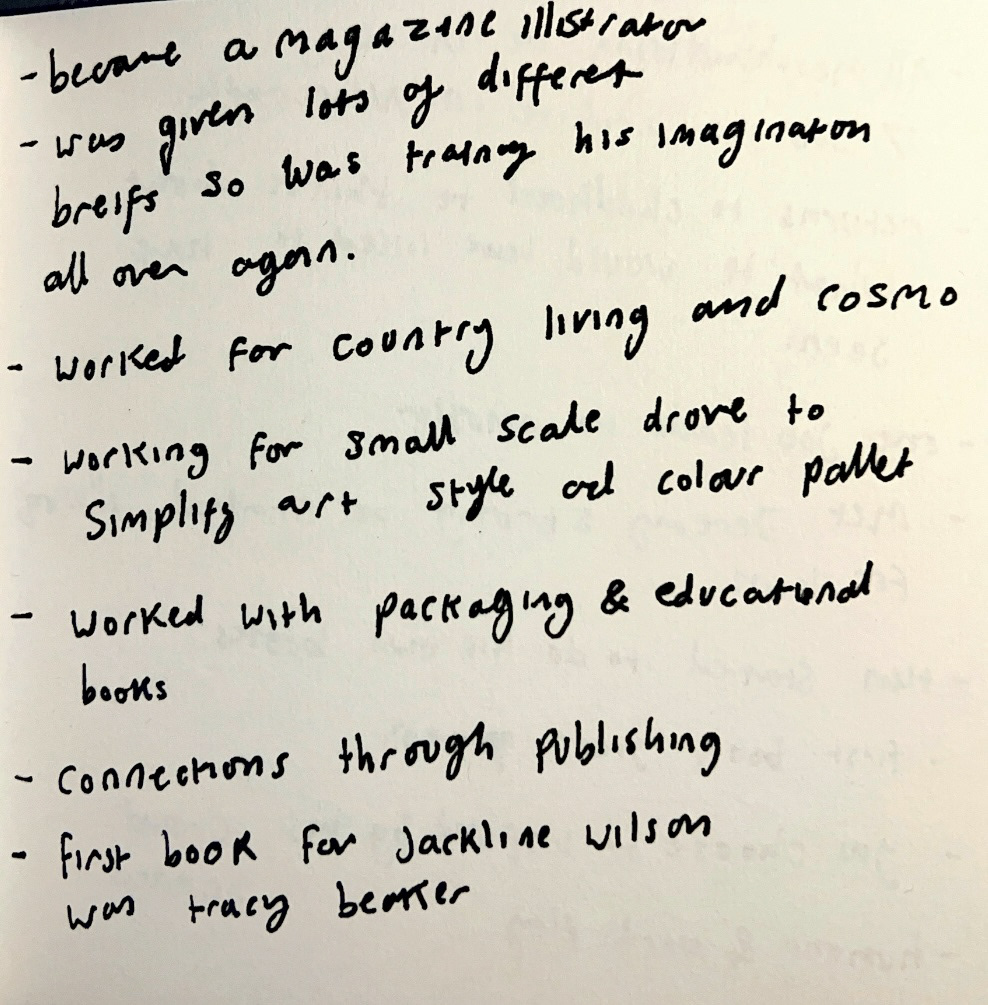 - became a magazine illistrator
- was given lots of differet
breifs so was trainng his imaginaton
all over again.
- worked for country living and cosmo
- working for small scale drove to
Simplify art style ad colour pallet
- worked with packaging & educational
books
- connections through publishing
- first book for Jackline wilson
was tracy beaker